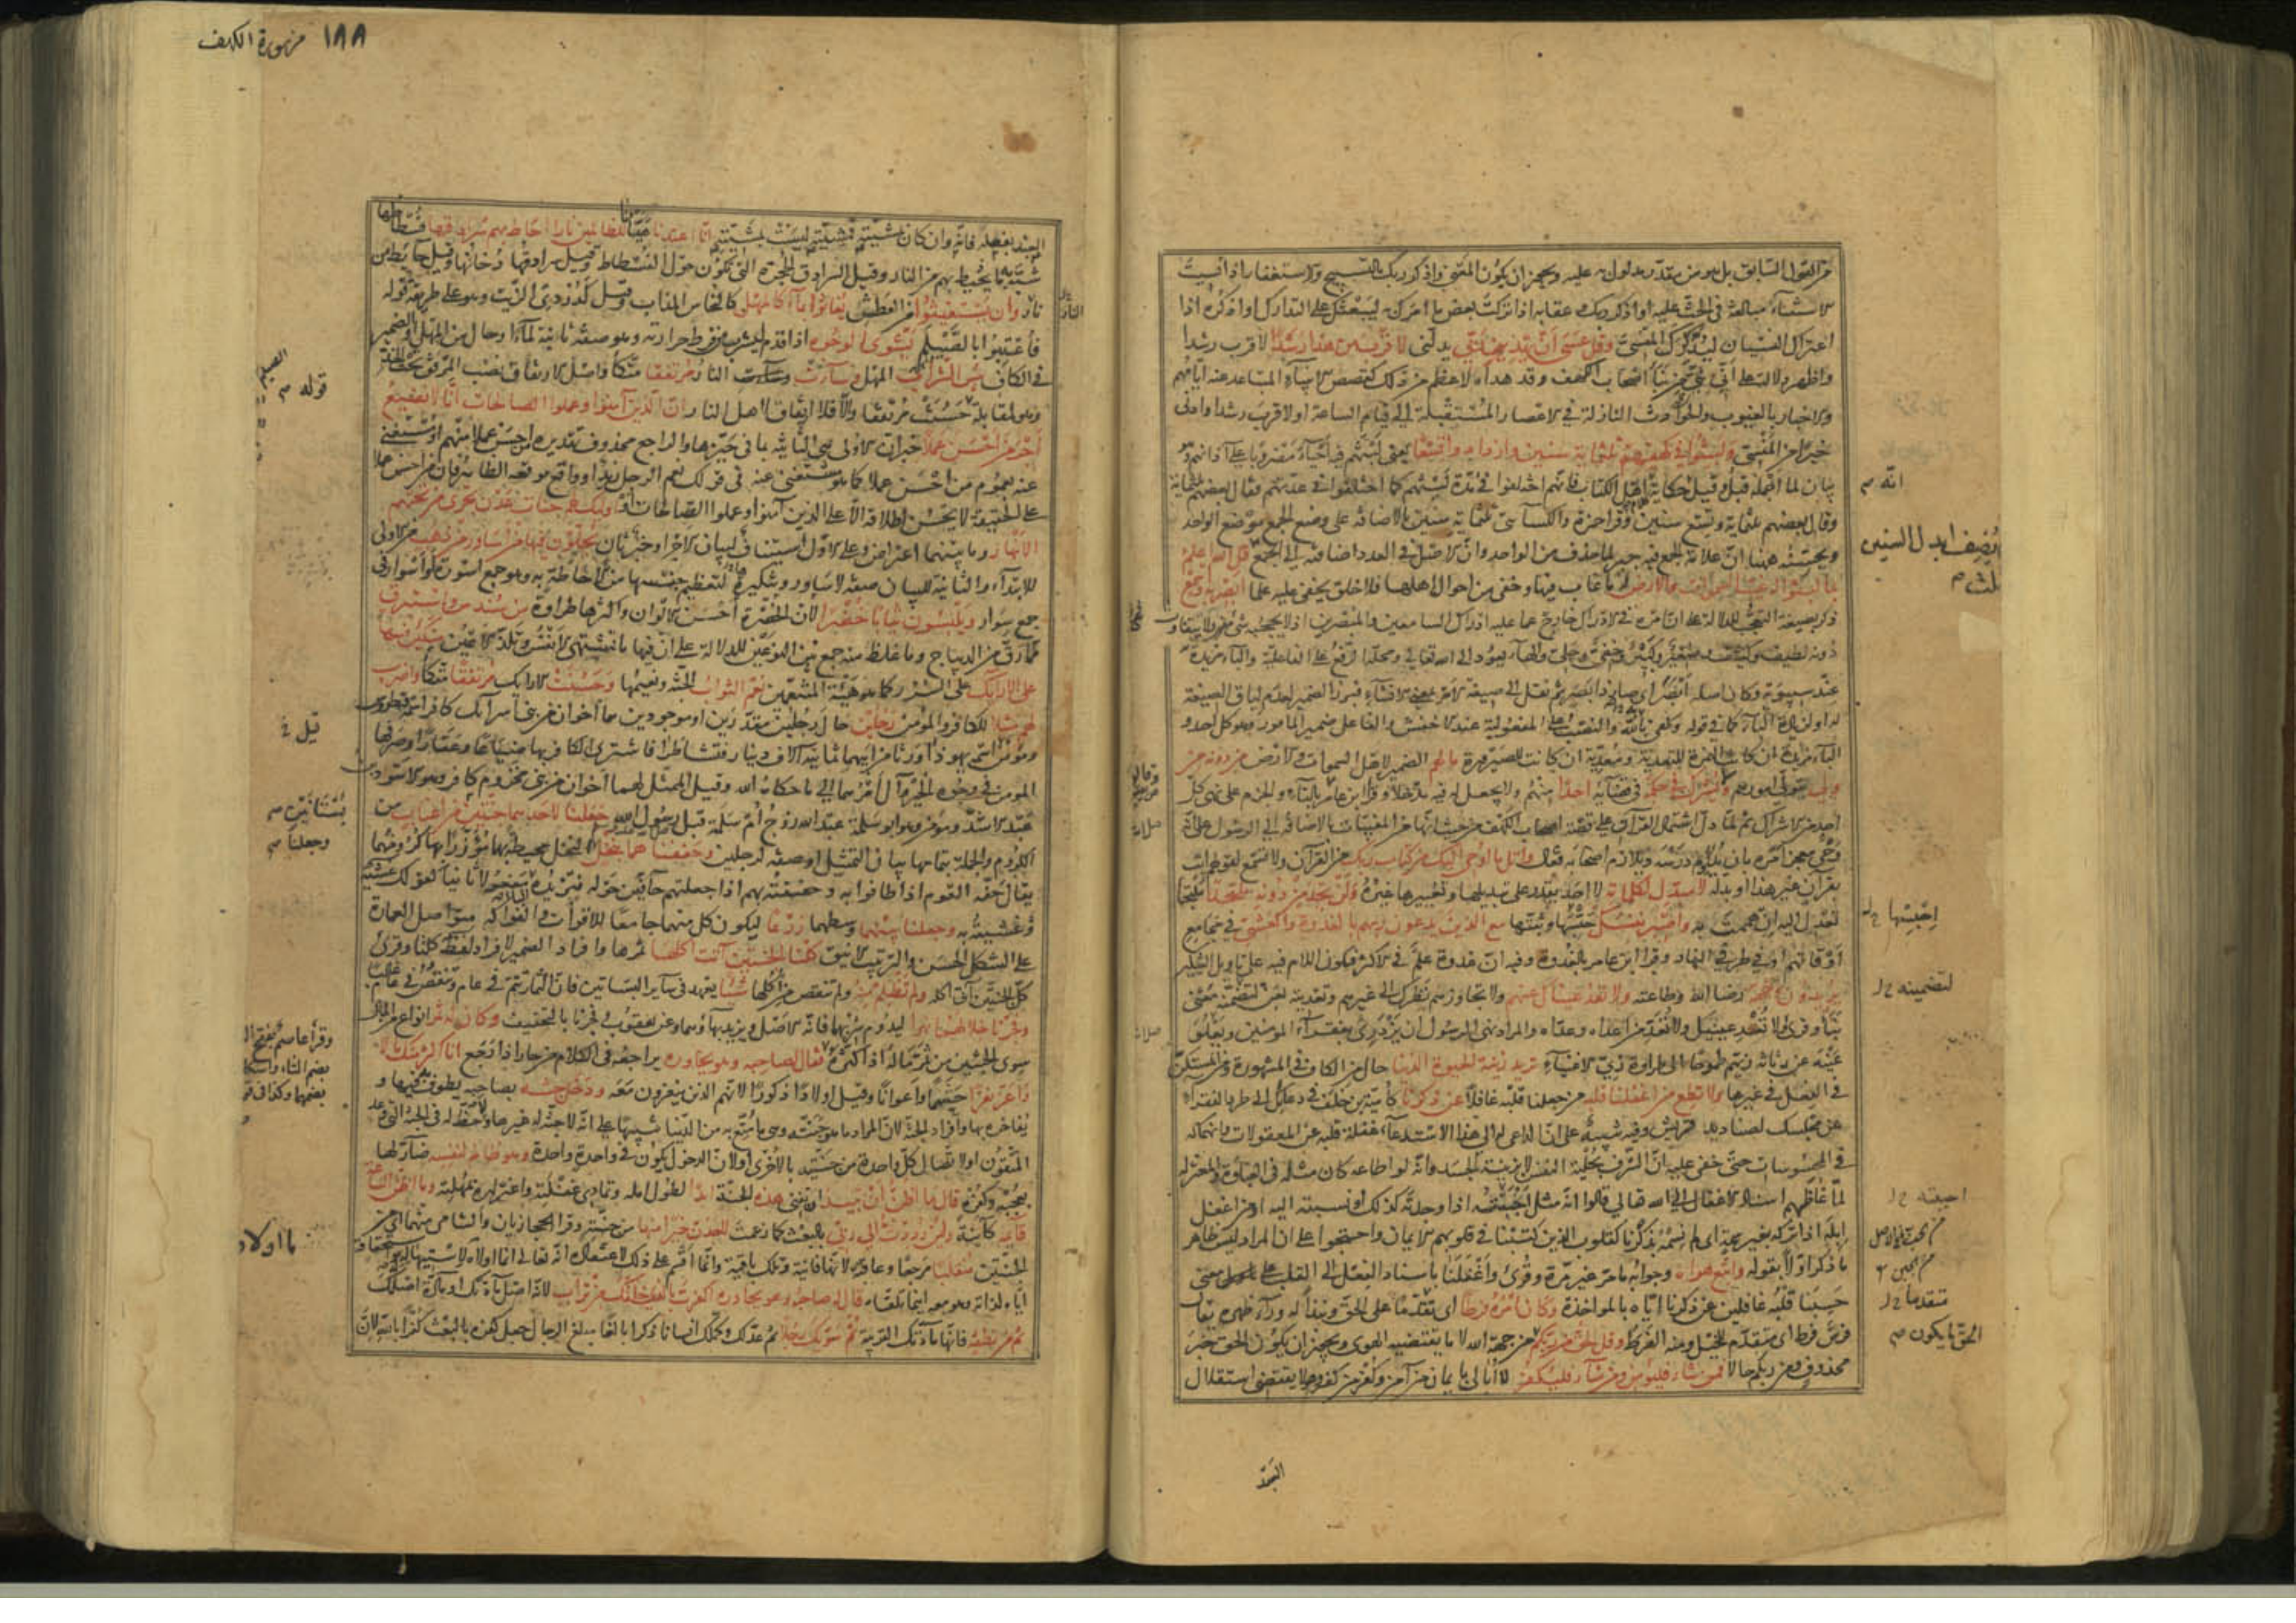 من القول السابق بل هو من مقدر مدلول به عليه ويجوز ان يكون المعنى واذكر ربك بالتسبيح والاستغفار اذا نسيت
الاستثناء مبالغة في الحث عليه او اذكر ربك وعقابه اذا تركت بعض ما امرك به ليبعثك على التدارك او اذكره اذا
اعتراك النسيان ليذكرك المنسي وقل عسى ان يهدين ربي يدلني لاقرب من هذا رشدا لاقرب رشدا
واظهر دلالة على اني نبي من نبأ اصحاب الكهف وقد هداه لاعظم من ذلك كقصص الانبياء المتباعد عنه ايامهم
والاخبار بالغيوب والحوادث النازلة في الاعصار المستقبلة الى قيام الساعة او لاقرب رشدا وادنى
خيرا من المنسي ولبثوا في كهفهم ثلثماية سنين وازدادوا تسعا يعني لبثهم فيه احياء مضروبا على آذانهم وهو
بيان لما اجمله قبل وقيل حكاية اهل الكتاب فانهم اختلفوا في مدة لبثهم كما اختلفوا في عدتهم فقال بعضهم ثلثماية
وقال بعضهم ثلثماية وتسع سنين وقرا حمزة والكسائي ثلثماية سنين بالاضافة على وضع الجمع موضع الواحد
ويحسنه ههنا ان علامة الجمع فيه جبر لما حذف من الواحد وان الاصل في العدد اضافته الى الجمع قل الله اعلم
بما لبثوا له غيب السموات والارض له ما غاب فيها وخفى من احوال اهلها فلا خلق يخفى عليه علما ابصر به واسمع
ذكر بصيغة التعجب للدلالة على ان امره في الادراك خارج عما عليه ادراك السامعين والمبصرين اذ لا يحجبه شئ ولا يتفاوت
دونه لطيف وكثيف وصغير وكبير وخفي وجلي والهاء يعود الى الله تعالى ومحله الرفع على الفاعلية والباء مزيدة
عند سيبويه وكان اصله ابصر اي صار ذا بصر ثم نقل الى صيغة الامر بمعنى الانشاء فبرز الضمير لعدم لياق الصيغة
له او لزيادة الباء كما في قوله وكفى بالله والنصب على المفعولية عند الاخفش والفاعل ضمير المامور وهو كل احد و
الباء مزيدة ان كانت الهمزة للتعدية ومعدية ان كانت للصيرورة ما لهم الضمير لاهل السموات والارض من دونه من
ولي يتولى امورهم ولا يشرك في حكمه في قضائه احدا منهم ولا يجعل له فيه مدخلا وقرا ابن عامر بالتاء والجزم على نهي كل
احد من الاشراك ثم لما دل اشتمال القرآن على قصة اصحاب الكهف من حيث انها من المغيبات بالاضافة الى الرسول على انه
وحي معجز امره بان يداوم درسه ويلازم اصحابه فقال واتل ما اوحي اليك من كتاب ربك من القرآن ولا تسمع لقولهم ائت
بقرآن غير هذا او بدله لا مبدل لكلماته لا احد يقدر على تبديلها وتغييرها غيره ولن تجد من دونه ملتحدا ملتجأ
تعدل اليه ان هممت به واصبر نفسك حبسها وثبتها مع الذين يدعون ربهم بالغدوة والعشي في مجامع
اوقاتهم او في طرفي النهار وقرا ابن عامر بالغدوة وفيه ان غدوة علم في الاكثر فيكون اللام فيه على تاويل التنكير
يريدون وجهه رضا الله وطاعته ولا تعد عيناك عنهم ولا تجاوزهم نظرك الى غيرهم وتعديته بعن لتضمنه معنى
نبا وقرئ ولا تعد عينيك ولا تعد من اعداه وعداه والمراد نهي الرسول ان يزدري بفقراء المؤمنين وتعلو
عينه عن رثاثة زيهم طموحا الى طراوة زي الاغنياء تريد زينة الحيوة الدنيا حال من الكاف في المشهورة ومن المستكن
في الفعل في غيرها ولا تطع من اغفلنا قلبه من جعلنا قلبه غافلا عن ذكرنا كامية بن خلف في دعائك الى طرد الفقراء
عن مجلسك لصناديد قريش وفيه تنبيه على ان الداعي له الى هذا الاستدعاء غفلة قلبه عن المعقولات وانهماكه
في المحسوسات حتى خفي عليه ان الشرف بحلية النفس لا بزينة الجسد وانه لو اطاعه كان مثله في الغباوة والمعتزلة
لما غاظهم اسناد الاغفال الى الله تعالى قالوا انه مثل اجبنته اذا وجدته كذلك او نسبته اليه او من اغفل
ابله اذا تركه بغير سمة اي لم نسمه بذكرنا كقلوب الذين كتبنا في قلوبهم الايمان واحتجوا على ان المراد ليس ظاهر
ما ذكر اولا بقوله واتبع هواه وجوابه ما مر غير مرة وقرئ اغفلنا باسناد الفعل الى القلب على معنى
حسبنا قلبه غافلين عن ذكرنا اياه بالمواخذة وكان امره فرطا اي تقدما على الحق ونبذا له وراء ظهره يقال
فرس فرط اي متقدم للخيل ومنه الفرط وقل الحق من ربكم من جهة الله لا ما يقتضيه الهوى ويجوز ان يكون الحق خبر
محذوف ومن ربكم حالا فمن شاء فليؤمن ومن شاء فليكفر لا ابالي بايمان من آمن وكفر من كفر وهو لا يقتضي استقلال
العبد
الله م
اجنبتها
لتضمينه
متقدما
الحق ما يكون م
١٨٨ من سورة الكهف
العبد بفعله فانه وان كان بمشيته فمشيته ليست بمشيته انا اعتدنا هيأنا للظالمين نارا احاط بهم سرادقها فسطاطها
شبه به ما يحيط بهم من النار وقيل السرادق الحجرة التي تكون حول الفسطاط وقيل سرادقها دخانها وقيل حايط من
نار وان يستغيثوا من العطش يغاثوا بماء كالمهل كالنحاس المذاب وقيل كدردي الزيت وهو على طريقة قوله
فاعتبوا بالصيلم يشوي الوجوه اذا قدم ليشرب من فرط حرارته وهو صفة ثانية لماء او حال من المهل او الضمير
في الكاف بئس الشراب المهل وساءت النار مرتفقا متكأ واصل الارتفاق نصب المرفق تحت الخد
وهو لمقابلة حسنت مرتفقا والا فلا ارتفاق لاهل النار ان الذين آمنوا وعملوا الصالحات انا لا نضيع
اجر من احسن عملا خبر ان الاولى هي الثانية بما في حيزها والراجع محذوف تقديره من احسن عملا منهم او مستغنى
عنه بعموم من احسن عملا كما هو مستغنى عنه في قولك نعم الرجل زيد او واقع موقعه الظاهر فان من احسن عملا
على الحقيقة لا يحسن اطلاقه الا على الذين آمنوا وعملوا الصالحات اولئك لهم جنات عدن تجري من تحتهم
الانهار وما بينهما اعتراض وعلى الاول استيناف لبيان الاجر او خبر ثان يحلون فيها من اساور من ذهب من الاولى
للابتداء والثانية للبيان صفة لاساور وتنكيره لتعظيم حسنها من الاحاطة به وهو جمع اسورة او اسوار في
جمع سوار ويلبسون ثيابا خضرا لان الخضرة احسن الالوان واكثرها طراوة من سندس واستبرق
مما رق من الديباج وما غلظ منه جمع بين النوعين للدلالة على ان فيها ما تشتهي الانفس وتلذ الاعين متكئين فيها
على الارائك على السرر كما هو هيئة المتنعمين نعم الثواب الجنة ونعيمها وحسنت الارائك مرتفقا متكأ واضرب
لهم مثلا للكافر والمؤمن رجلين حال رجلين مقدرين او موجودين هما اخوان من بني اسرائيل كافر اسمه قطروس
ومؤمن اسمه يهوذا ورثا من ابيهما ثمانية آلاف دينار فتشاطرا فاشترى الكافر بها ضياعا وعقارا وصرفها
المؤمن في وجوه الخير وآل امرهما الى ما حكاه الله وقيل الممثل بهما اخوان من بني مخزوم كافر وهو الاسود بن
عبد الاشد ومؤمن وهو ابو سلمة عبد الله زوج ام سلمة قبل رسول الله جعلنا لاحدهما جنتين من اعناب من
الكروم والجملة بتمامها بيان التمثيل او صفة لرجلين وحففناهما بنخل وجعلنا النخل محيطة بهما مؤزرا بها كرومهما
يقال حفه القوم اذا طافوا به وحففته بهم اذا جعلتهم حافين حوله فتزيده الباء مفعولا ثانيا كقولك غشيته
وغشيته به وجعلنا بينهما وسطهما زرعا ليكون كل منهما جامعا للاقوات والفواكه متواصل العمارة
على الشكل الحسن والترتيب الانيق كلتا الجنتين آتت اكلها ثمرها وافراد الضمير لافراد لفظ كلتا وقرئ
كل الجنتين آتى اكله ولم تظلم منه ولم تنقص من اكلها شيئا يعهد في ساير البساتين فان الثمار تتم في عام وتنقص في عام غالبا
وفجرنا خلالهما نهرا ليدوم شربهما فانه الاصل ويزيد بهاؤهما وعن يعقوب وفجرنا بالتخفيف وكان له ثمر انواع من المال
سوى الجنتين من ثمر ماله اذا كثره فقال لصاحبه وهو يحاوره يراجعه في الكلام من حار اذا رجع انا اكثر منك مالا
واعز نفرا حشما واعوانا وقيل اولادا ذكورا لانهم الذين ينفرون معه ودخل جنته بصاحبه يطوف به فيها و
يفاخره بها وافراد الجنة لان المراد ما هو جنته وهي ما متع به من الدنيا تنبيها على انه لا جنة له غيرها ولا حظ له في الجنة التي وعد
المتقون او لاتصال كل واحدة من جنتيه بالاخرى او لان الدخول يكون في واحدة واحدة وهو ظالم لنفسه ضار لها
بعجبه وكفره قال ما اظن ان تبيد ان تفنى هذه الجنة ابدا لطول امله وتمادي غفلته واغتراره بمهلته وما اظن الساعة
قائمة كائنة ولئن رددت الى ربي بالبعث كما زعمت لاجدن خيرا منها من جنته وقرا الحجازيان والشامي منهما اي من
الجنتين منقلبا مرجعا وعاقبة لانها فانية وتلك باقية وانما اقسم على ذلك لاعتقاده انه تعالى انما اولاه لاستيهاله واستحقاقه
اياه لذاته وهو معه اينما تلقاه قال له صاحبه وهو يحاوره اكفرت بالذي خلقك من تراب لانه اصل مادتك او مادة اصلك
ثم من نطفة فانها مادتك القريبة ثم سويك رجلا ثم عدلك وكملك انسانا ذكرا بالغا مبلغ الرجال جعل كفره بالبعث كفرا بالله لان
قوله م
قيل
بستانين م
وجعلنا م
وقرأ عاصم بفتح
بضم الثاء واسكان